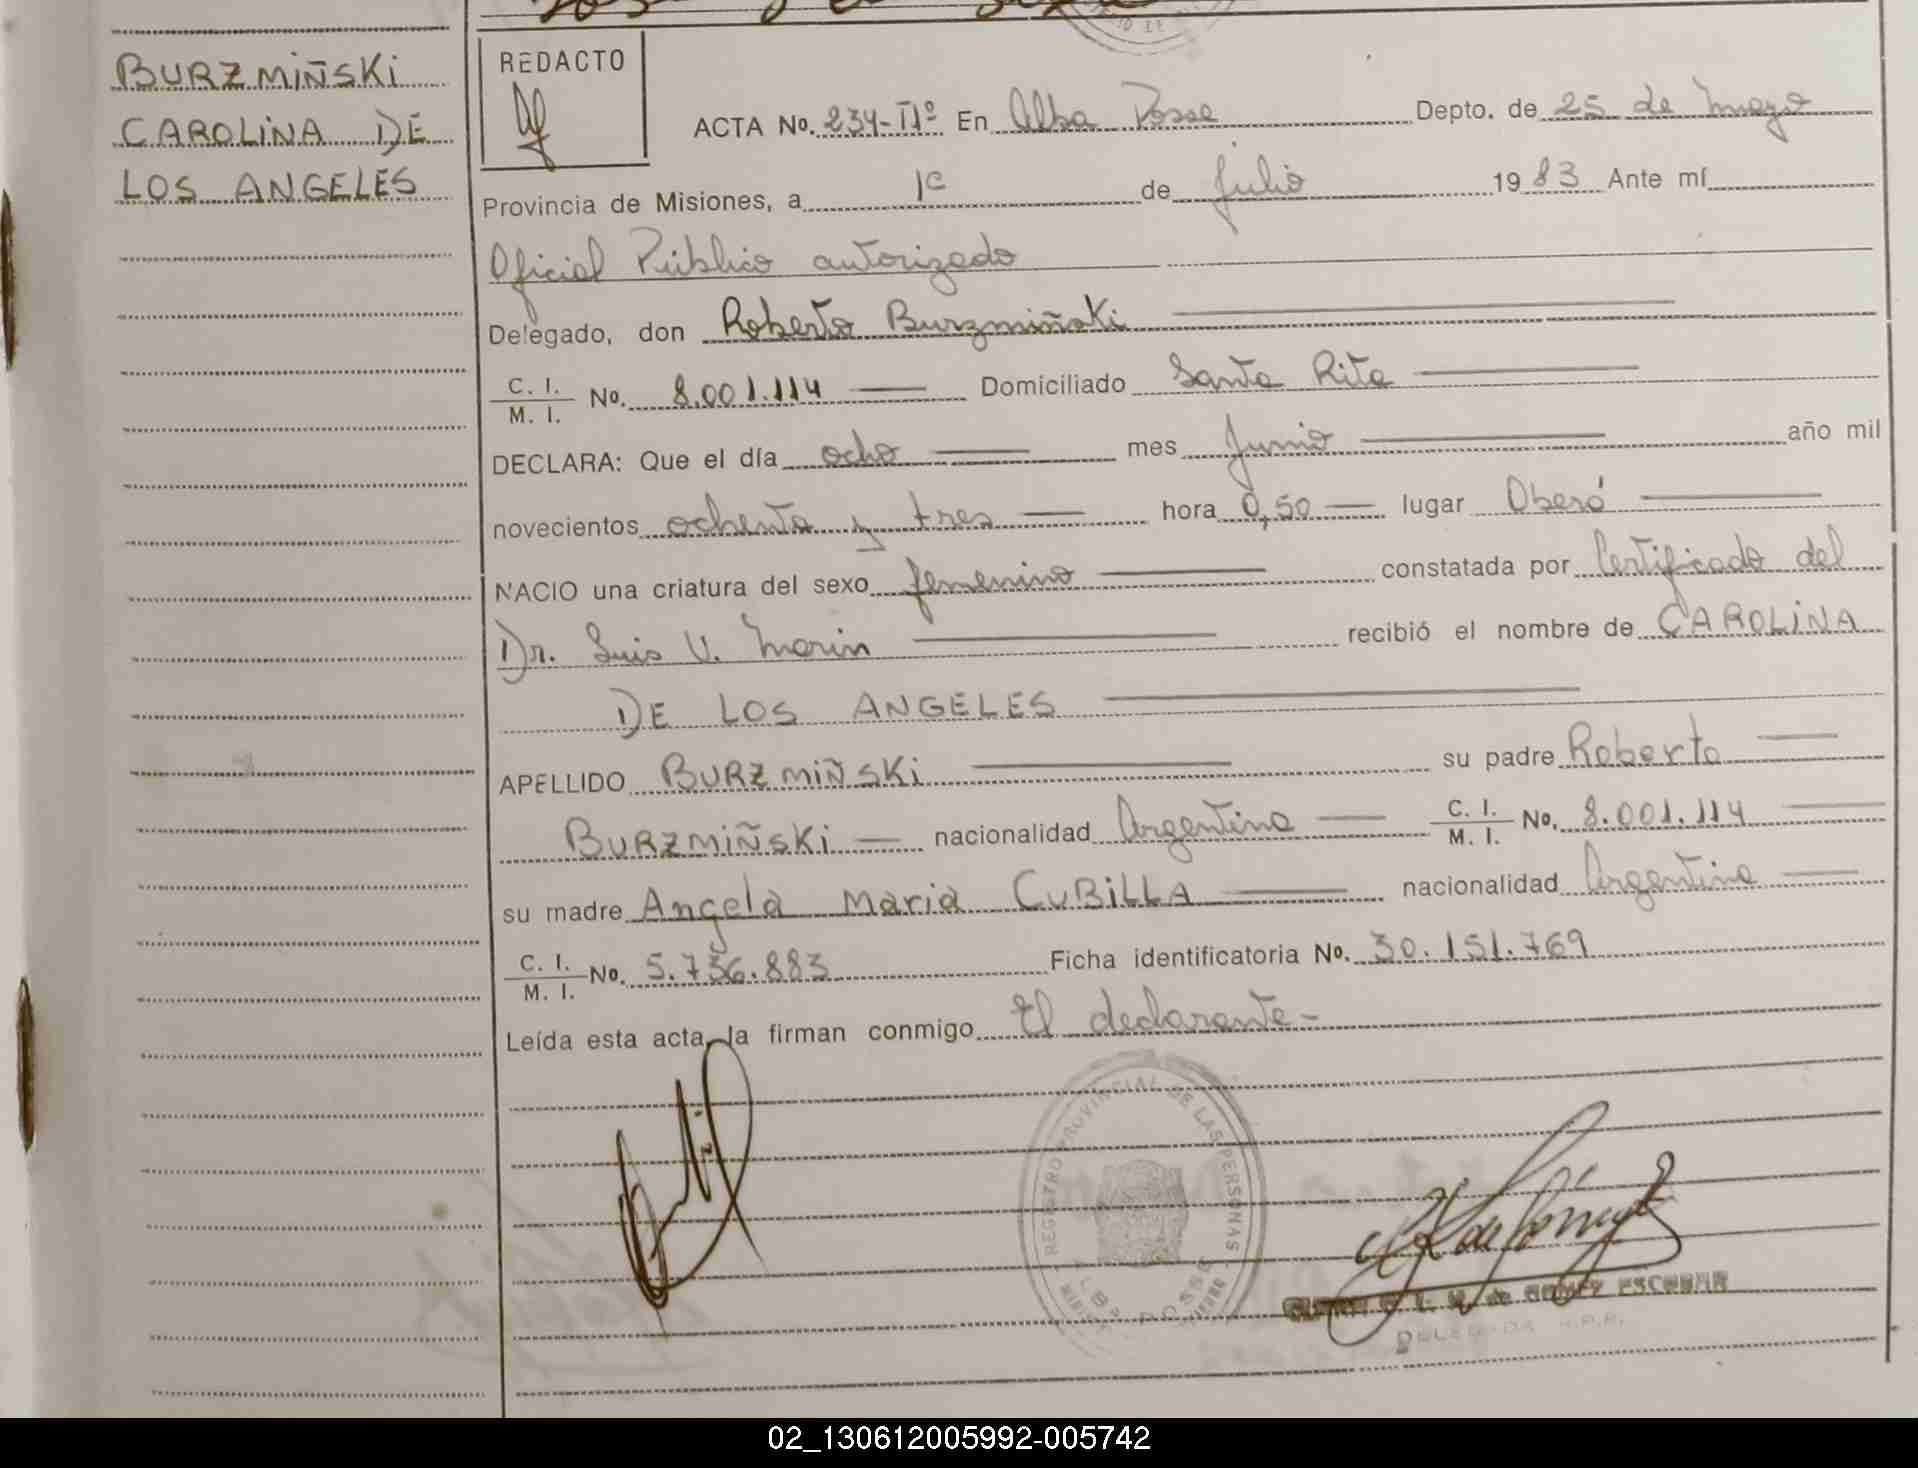 BURZMIÑSKI
CAROLINA DE
LOS ANGELES
REDACTO
ACTA No. 234-IIº En Alba Posse Depto. de 25 de mayo
Provincia de Misiones, a 1º de julio 1983 Ante mí
Oficial Público autorizado
Delegado, don Roberto Burzmiñski
C. I.
M. I. No. 8.001.114 Domiciliado Santa Rita
DECLARA: Que el día ocho mes Junio año mil
novecientos ochenta y tres hora 0,50 lugar Oberá
NACIO una criatura del sexo femenino constatada por Certificado del
Dr. Luis V. Marin recibió el nombre de CAROLINA
DE LOS ANGELES
APELLIDO BURZMIÑSKI su padre Roberto
BURZMIÑSKI nacionalidad Argentina C. I. M. I. No. 8.001.114
su madre Angela Maria CUBILLA nacionalidad Argentina
C. I.
M. I. No. 5.736.883 Ficha identificatoria No. 30.151.769
Leída esta acta, la firman conmigo El declarante-
REGISTRO PROVINCIAL DE LAS PERSONAS
ALBA POSSE
de GOMEZ ESCOBAR
DELEGADA R.P.P.
02_130612005992-005742